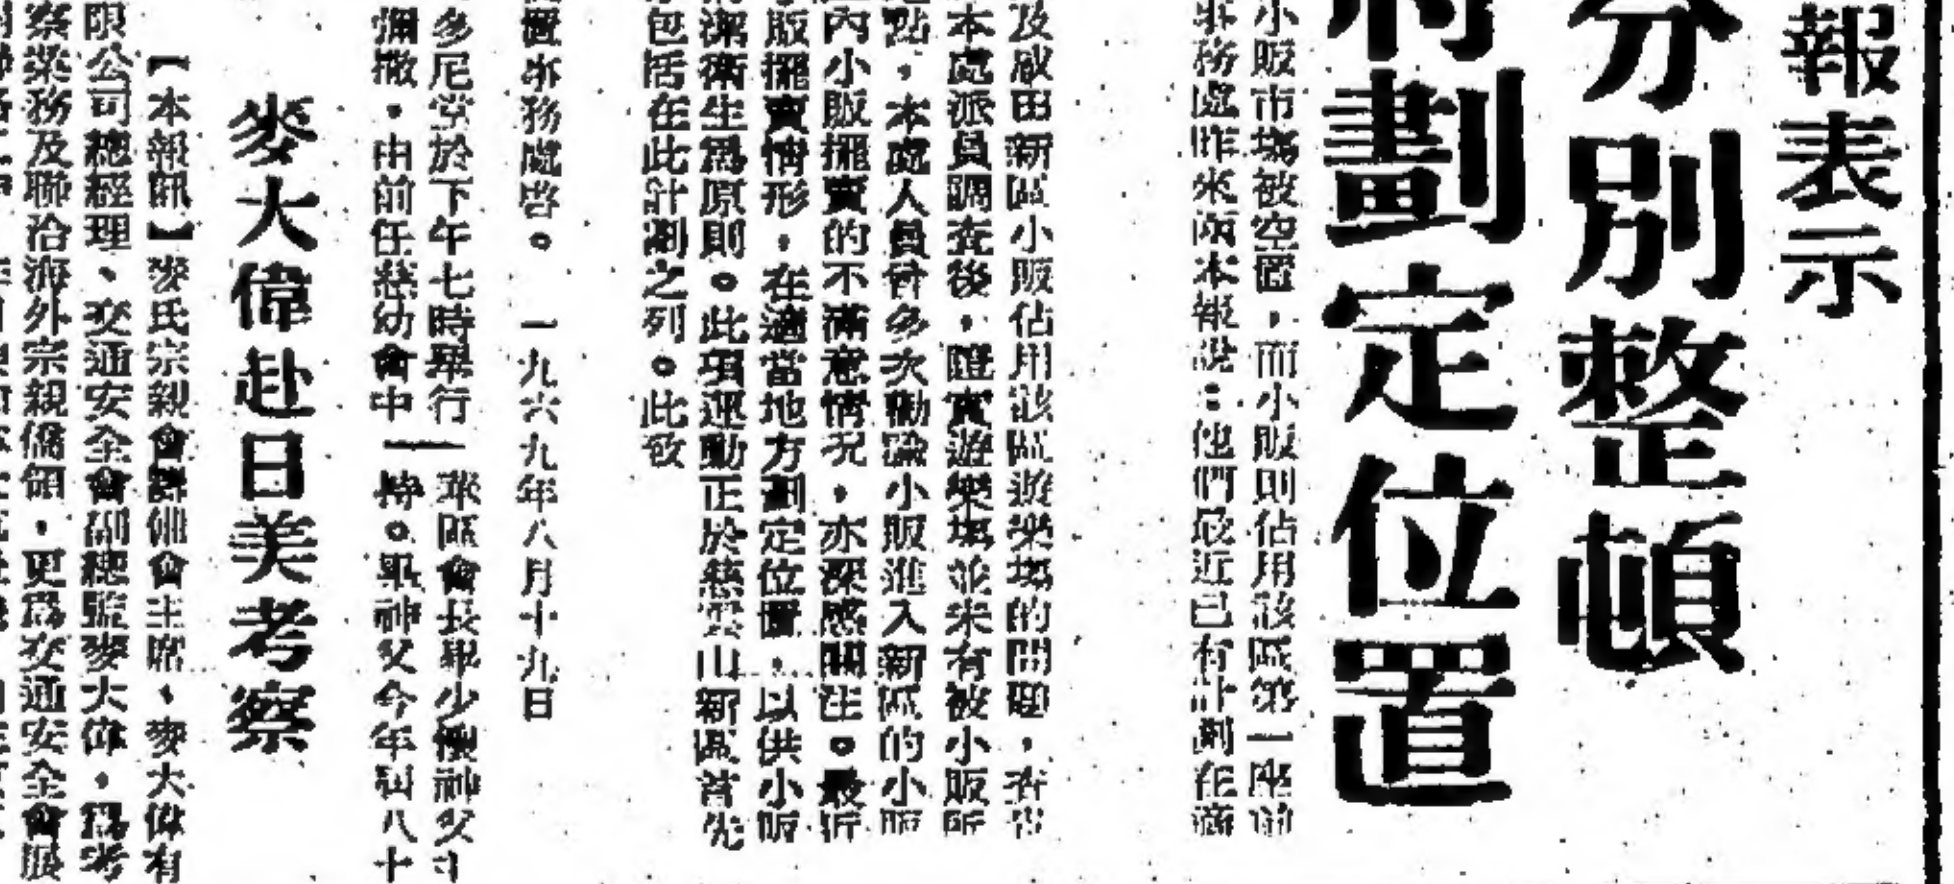 報表示
分別整頓
將劃定位置
小販市塲被空置，而小販則佔用該區第一座前
事務處昨來函本報說：他們最近已有計劃在適
及咸田新區小販佔用該區遊樂塲的問題，
本處派員調查後，證實遊樂塲並未有被小販所
點，本處人員曾多次勸諭小販進入新區的小販
內小販擺賣的不滿意情况，亦深感關注。最近
販擺賣情形，在適當地方劃定位置，以供小販
潔衛生爲原則。此項運動正於慈雲山新區首先
包括在此計劃之列。此致
置事務處啓。一九六九年八月十九日
多尼堂於下午七時舉行
彌撒，由前任慈幼會中
華區會長畢少懷神父主
持。畢神父今年到八十
麥大偉赴日美考察
【本報訊】麥氏宗親會主席、麥大偉有
限公司總經理、交通安全會副總監麥大偉，爲考
察業務及聯洽海外宗親僑領，更爲交通安全會展